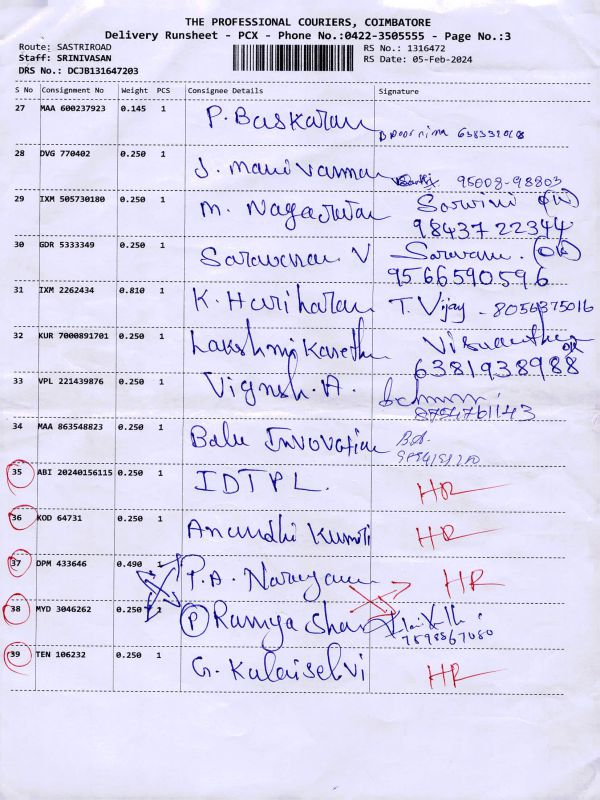 THE PROFESSIONAL COURIERS, COIMBATORE
Delivery Runsheet - PCX - Phone No.:0422-3505555 - Page No.:3
Route: SASTRIROAD RS No.: 1316472
Staff: SRINIVASAN RS Date: 05-Feb-2024
DRS No.: DCJB131647203
S No Consignment No Weight PCS Consignee Details Signature
27 MAA 600237923 0.145 1 P. Baskaran
28 DVG 770402 0.250 1 J. Manivannan 95008-98803
29 IXM 505730180 0.250 1 M. Nagarajan
98437 22344
30 GDR 5333349 0.250 1 Saravanan V Saravana. (OK)
9566590596
31 IXM 2262434 0.810 1 K. Hariharan T. Vijay - 8054375016
32 KUR 7000891701 0.250 1 Lakshmikanth
6381938988
33 VPL 221439876 0.250 1 Vignesh. A.
8754761143
34 MAA 863548823 0.250 1 Balu Innovation
35 ABI 20240156115 0.250 1 IDTPL HR
36 KOD 64731 0.250 1 Anandhi Kumari HR
37 DPM 433646 0.490 1 P.A. Narayanan HR
38 MYD 3046262 0.250 1 (P) Ramya
7598567080
39 TEN 106232 0.250 1 G. Kalaiselvi HR